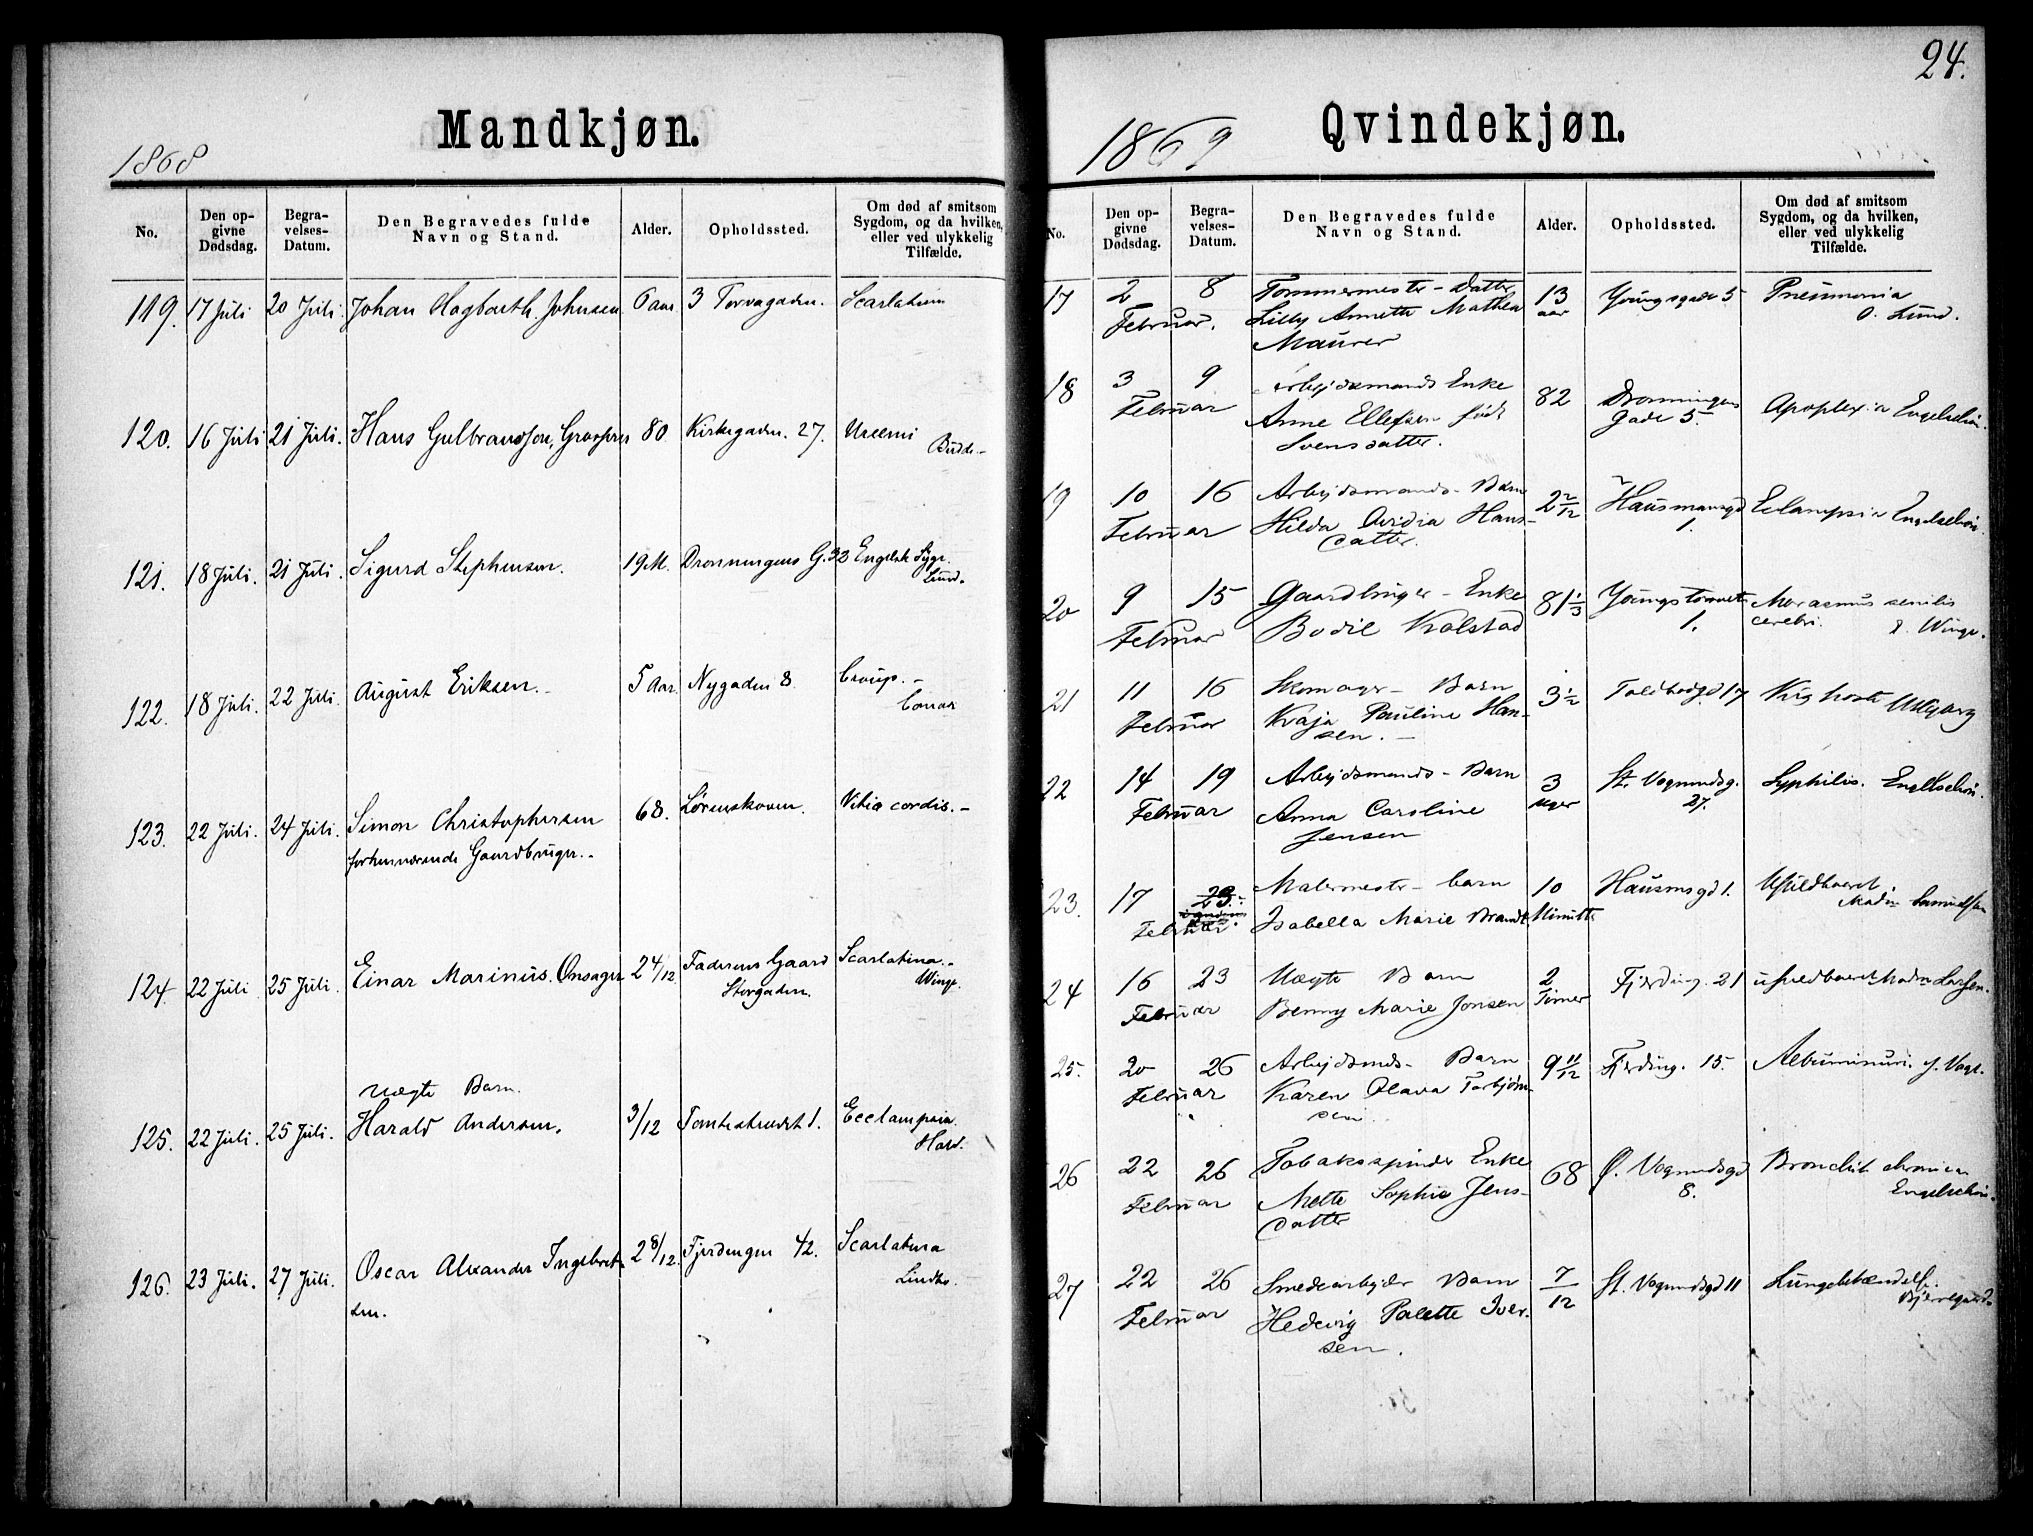 Mandkjøn.
1868
No.
Den op-
givne
Dødsdag.
Begra-
velses-
Datum.
Den Begravedes fulde
Navn og Stand.
Alder.
Opholdssted.
Om død af smitsom
Sygdom, og da hvilken,
eller ved ulykkelig
Tilfælde.
119. 17 Juli 20 Juli Johan Hagbarth Johnsen 6 aar 3 Torvegaden. Scarlatina
120. 16 Juli 21 Juli. Hans Gulbrandsen, 80 Kirkegaden. 27. Uremi
Budde.
121. 18 Juli. 21 Juli. Sigurd Stephensen. 19 M. Dronningens G. 22 Engelsk Syge.
Lund.
122. 18 Juli. 22 Juli. August Eriksen. 5 Aar. Nygaden 8 Croup.
123. 22 Juli. 24 Juli. Simon Christophersen 68. Lørenskoven. Vitia cordis.
forhenværende Gaardbruger.
124 22 Juli 25 Juli. Einar Marinus Onsager 2 4/12 Faderens Gaard Scarlatina.
Storgaden. Winge.
uægte Barn.
125. 22 Juli. 25 Juli. Harald Andersen. 3/12 Tomtestrædet 1. Ecclampsia
126. 23 Juli. 27 Juli. Oscar Alexander Ingebret 2 8/12 Fjerdingen 42. Scarlatina
sen. Lindbo.
24.
Qvindekjøn.
1869
No.
Den op-
givne
Dødsdag.
Begra-
velses-
Datum.
Den Begravedes fulde
Navn og Stand.
Alder.
Opholdssted.
Om død af smitsom
Sygdom, og da hvilken,
eller ved ulykkelig
Tilfælde.
17 2 8 Tømmermester-Datter 13 Youngsgade 5 Pneumonia
Februar. Lilly Annette Mathea aar O. Lund.
Maurer
18 3 9 Arbejdsmands Enke 82 Dronningens Apoplexia Engelschiøn.
Februar Anne Ellefsen født Gade 5.
Svensdatter.
19 10 16 Arbejdsmands-Barn 2 2/12 Hausmansgd Eclampsia Engelschiøn.
Februar Hilda Ovidia Hans- 1.
datter.
20 9 15 Gaardbruger-Enke 81 1/3 Youngstorvet Marasmus senilis
Februar Bodil Kolstad 1. cerebri. Winge.
21 11 16 Skomager-Barn 3 1/2 Toldbodgd. 17 Kighoste
Februar Kaja Pauline Han-
sen.
22 14 19 Arbejdsmands-Barn 3 St. Vognmdsg. Syphilis. Engelschiøn.
Februar Anna Caroline uger 27.
Jensen
23. 17 23. Malermester-barn 10 Hausmsgd 1. Ufuldbaaret
Februar Isabella Marie Brandt Minutter Samuelsen
24 16 23 Uægte Barn 2 Fjerding. 21 ufuldbaaret Madm Larsen.
Februar Benny Marie Jonsen Timer
25. 20 26 Arbejdsmds- Barn 9 11/12 Fjerding. 15. Albuminuri. J. Vogt.
Februar Karen Olava Torbjørn-
sen.
26 22 26 Tobaksspinder Enke 68 Ø. Vognmdsgd Bronchit chronica
Februar Mette Sophie Jens- 8. Engelschiøn.
datter
27 22 26 Smedearbejder Barn 7/12 St. Vognmdsgd 11 Lungebetændelse.
Februar Hedevig Palette Iver- Bjerregaard
sen.